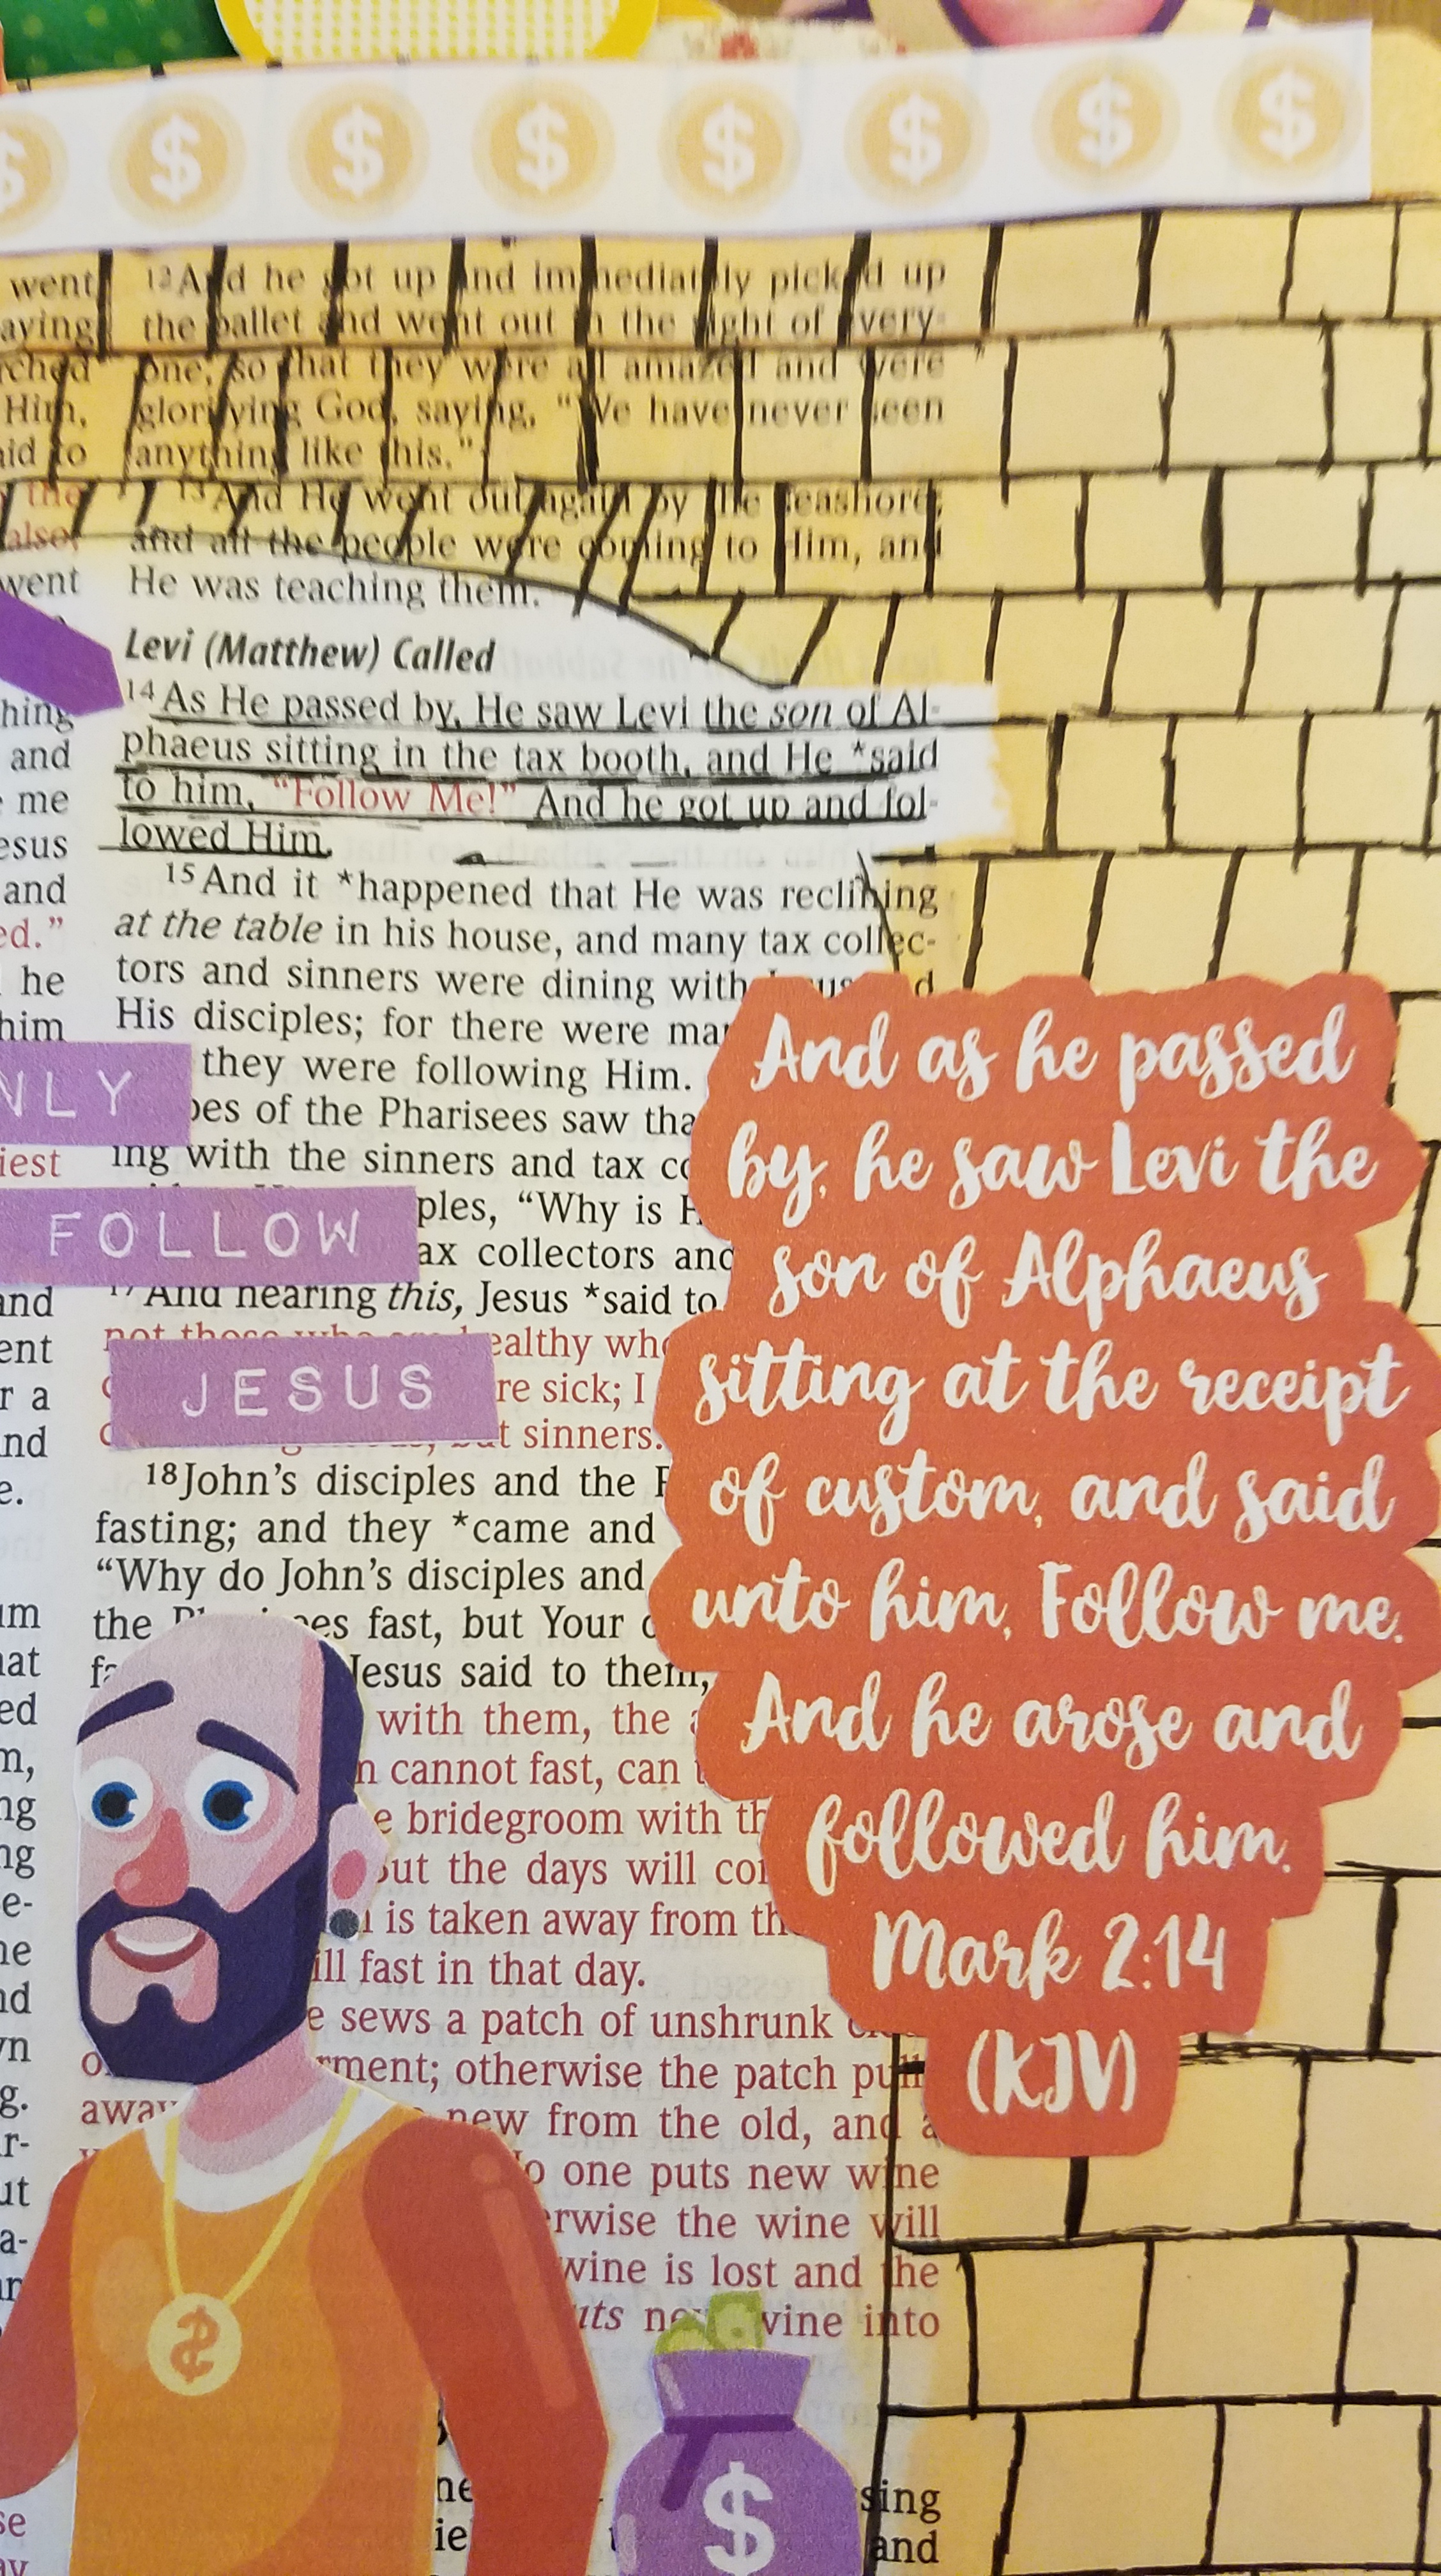 $ $ $ $ $ $ $ $
went
aying
Him,
aid to
the
also,
went
and
me
esus
and
ed."
he
him
NLY
iest
FOLLOW
and
ent
r a
JESUS
and
e.
12And he got up and immediately picked up
the pallet and went out in the sight of every-
one, so that they were all amazed and were
glorifying God, saying, "We have never seen
anything like this."
13And He went out again by the seashore;
and all the people were coming to Him, and
He was teaching them.
Levi (Matthew) Called
14As He passed by, He saw Levi the son of Al-
phaeus sitting in the tax booth, and He *said
to him, "Follow Me!" And he got up and fol-
lowed Him.
15And it *happened that He was reclining
at the table in his house, and many tax collec-
tors and sinners were dining with
His disciples; for there were
they were following Him.
of the Pharisees saw
ing with the sinners and tax
"Why is
collectors and
17And hearing this, Jesus *said to
not those who
sick; I
sinners.
18John's disciples and the
fasting; and they *came and
"Why do John's disciples and
the fast, but Your
Jesus said to them,
with them, the
cannot fast, can
bridegroom with
but the days will
is taken away from
fast in that day.
sews a patch of unshrunk
otherwise the patch
away new from the old, and a
one puts new wine
the wine will
wine is lost and the
new wine into
sing
and
And as he passed
by, he saw Levi the
son of Alphaeus
sitting at the receipt
of custom, and said
unto him, Follow me.
And he arose and
followed him.
Mark 2:14
(KJV)
$
$